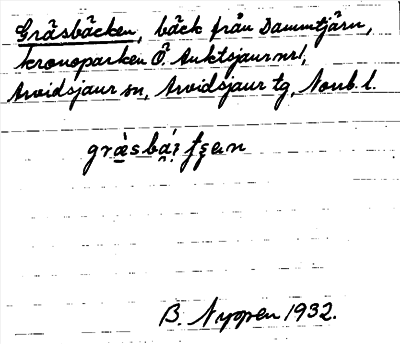 Gräsbäcken, bäck från Dammtjärn,
kronoparken Ö. Auktsjaur nr 1,
Arvidsjaur sn, Arvidsjaur tg, Norrb. l.
B. Nygren 1932.